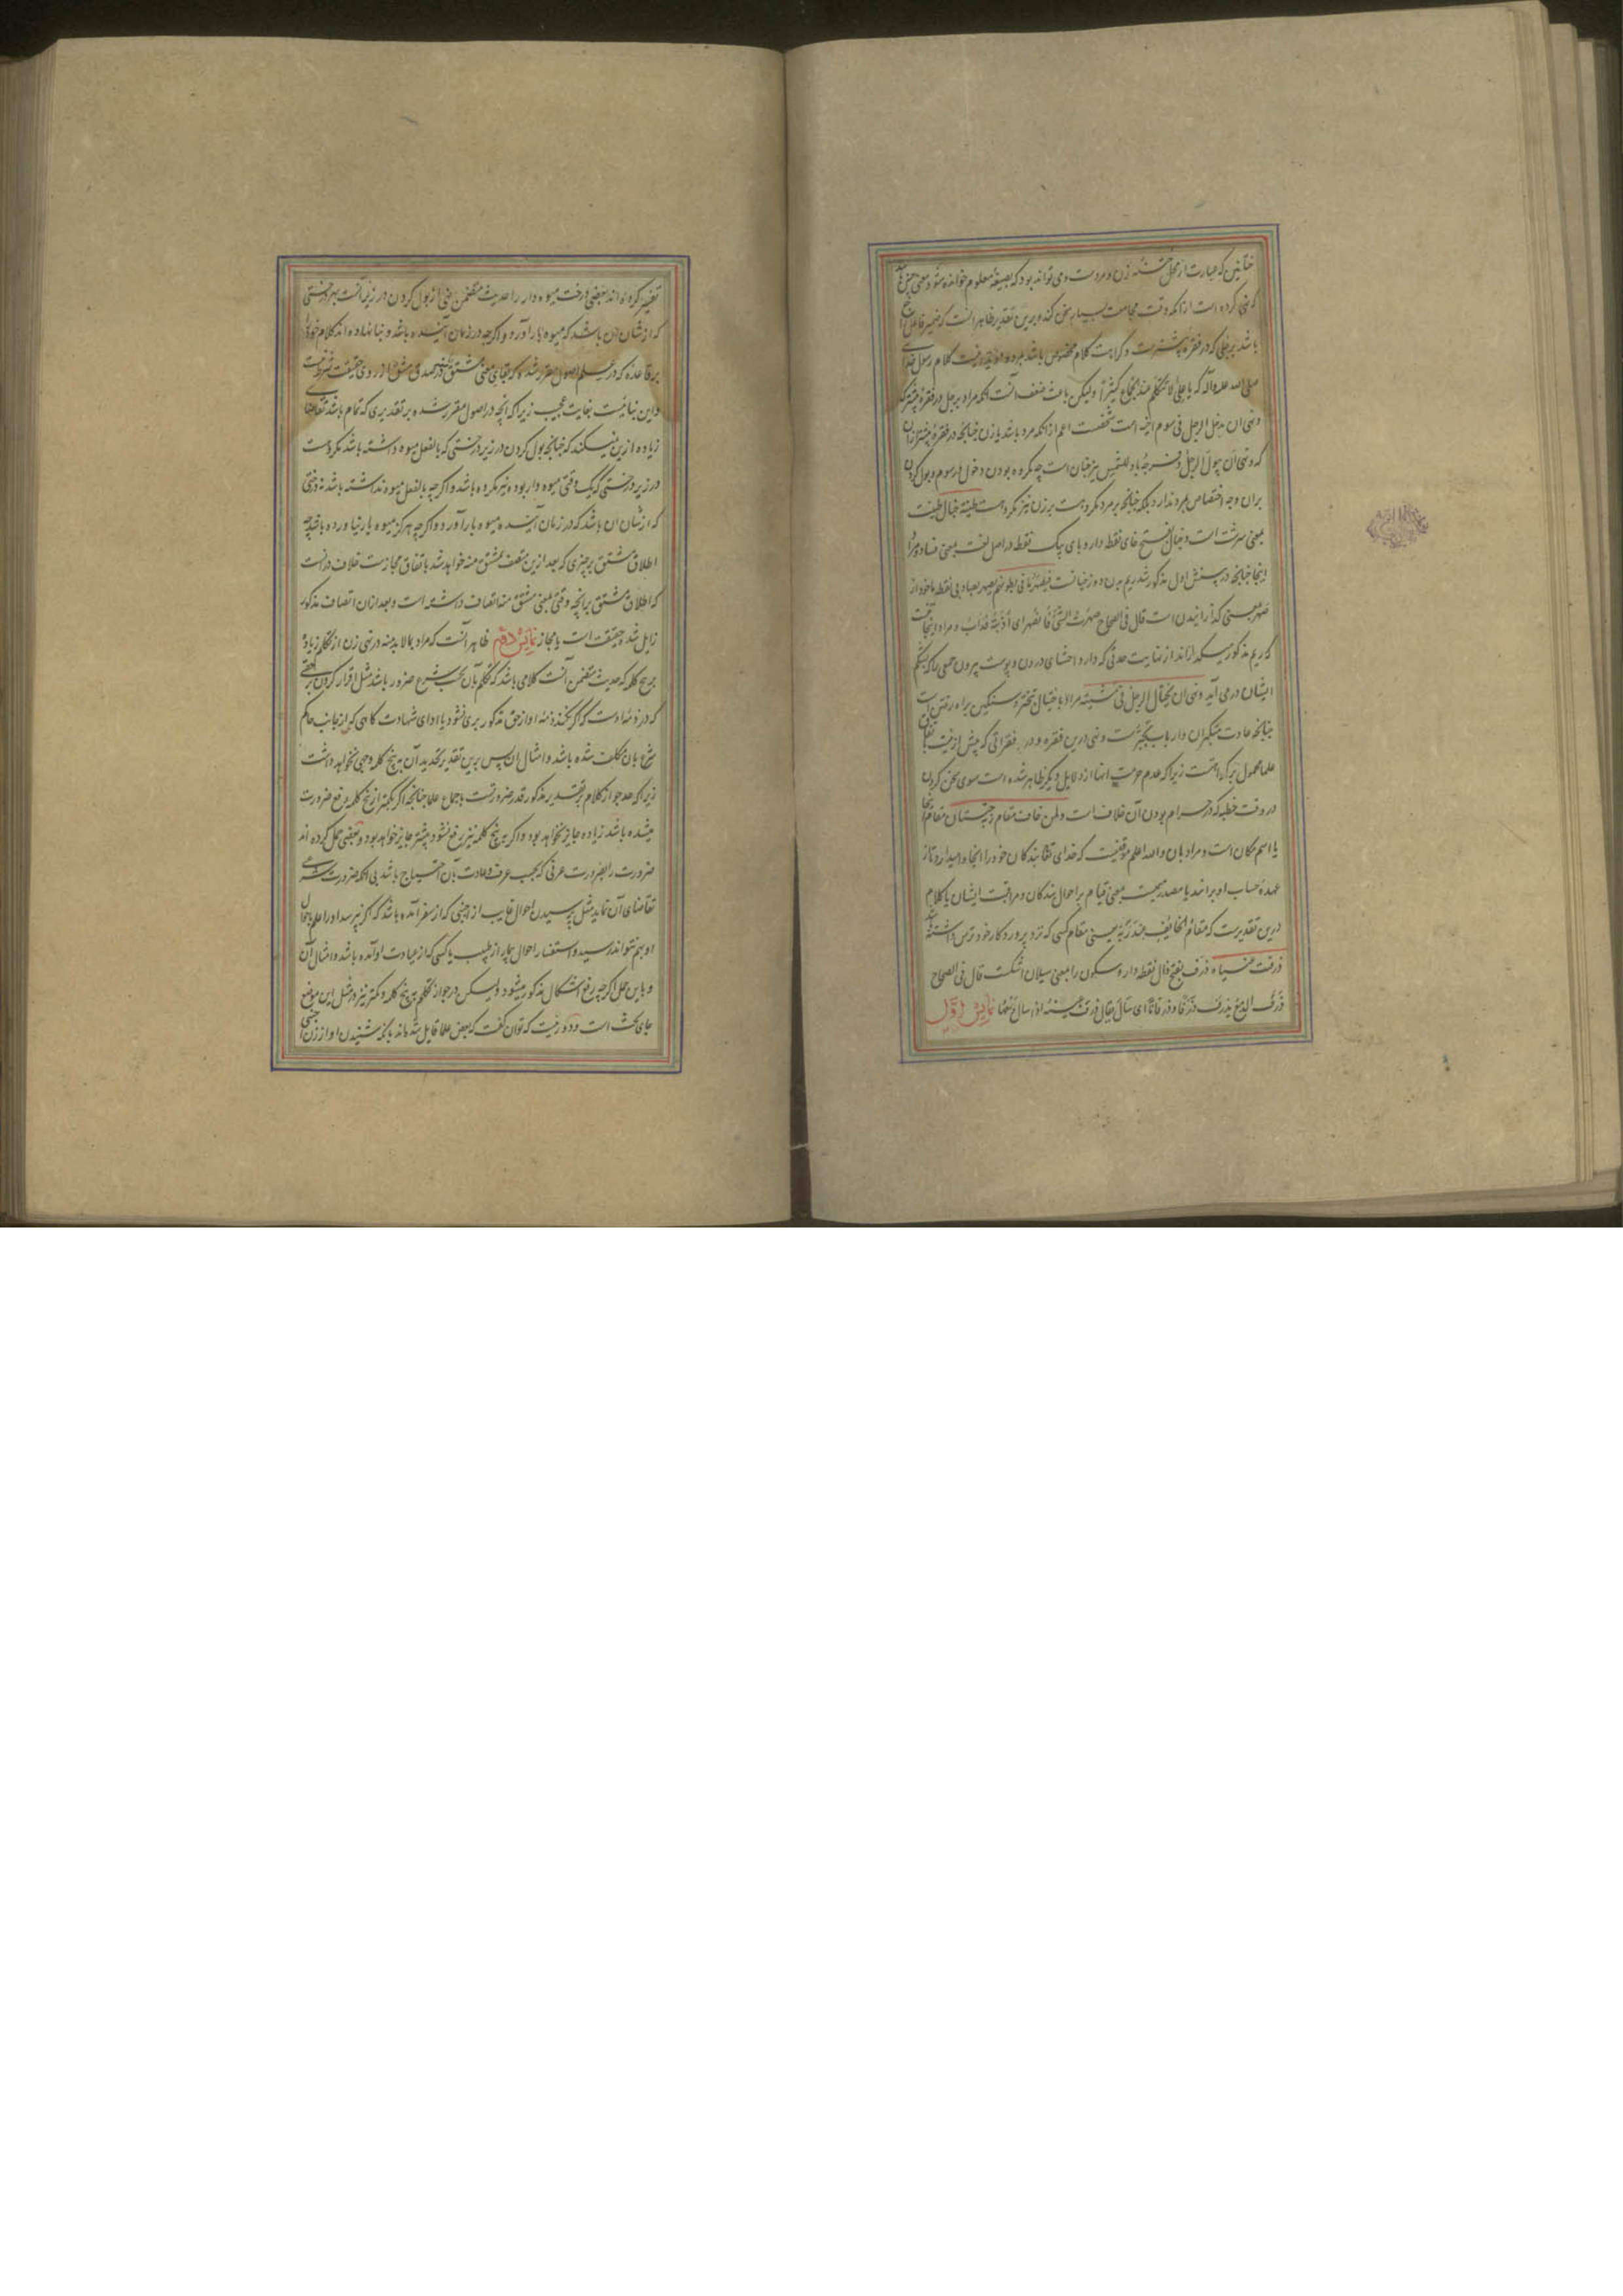 ختانین که عبارت از محل ختنهٔ زن و مردست و می تواند بود که بصیغهٔ معلوم خوانده شود و معنی چنین باشد
که نهی کرده است از انکه وقت مجامعت بسیار سخن کند و برین تقدیر ظاهر انست که ضمیر فاعل راجع
باشد برجلی که در فقرهٔ پیشترست و کراهت کلام مخصوص باشد بمرد و مؤید اینست کلام رسول خدای
صلی الله علیه و آله که یا علی لا تتکلم عند الجماع کثیراً ولیکن باعث ضعف آنست که مراد برجل در فقرهٔ پیشتر که
و نهی ان یدخل الرجل فی سوم اخیه است شخصست اعم از انکه مرد باشد یا زن چنانچه در فقرهٔ پیشتر ازان
که و نهی ان یبول الرجل و فرجه باد للشمس نیز چنان است چه مکروه بودن دخول در سوم و بول کردن
بران وجه اختصاص بمرد ندارد بلکه چنانچه بر مرد مکروهست بر زن نیز مکروهست طینة خبال طینت
بمعنی سرشت است و خبال بفتح خای نقطه دار و بای یک نقطه در اصل لغت بمعنی فساد و مراد
اینجا چنانچه در پیشش اول مذکور شد ریم بدن ده زخیانست فیصهر ما فی بطونهم یصهر بصاد بی نقطه ماخوذ از
صهر بمعنی گدازانیدن است قال فی الصحاح صهرت الشی فانصهر ای اذبته فذاب و مراد اینجا آنست
که ریم مذکور میگدازاند از نهایت حدتی که دارد احشای درون و پوست بیرون جمعی را که بشکم
ایشان درمی آید و نهی ان یختال الرجل فی مشیته مراد باختیال تبختر و سنگین براه رفتن است
چنانچه عادت متکبران و ارباب تجبرست و نهی درین فقره و در فقراتی که پیش ازینست باتفاق
علما محمول بر کراهتست زیرا که عدم حرمت انها از دلایل دیگر ظاهر شده است سوی سخن کردن
در وقت خطبه که در حرام بودن آن خلاف است ولمن خاف مقام ربه جنتان مقام اینجا
یا اسم مکان است و مراد بان والله اعلم موقفیست که خدای تعالی بندکان خود را انجا وامیدارد تا از
عهدهٔ حساب او برایند یا مصدر میمیست بمعنی قیام بر احوال بندکان و مراقبت ایشان یا کلام
درین تقدیرست که مقام الخایف عند ربه یعنی مقام کسی که نزد پروردکار خود ترس داشته باشد
ذرفت عیناه ذرف بفتح ذال نقطه دار و سکون را بمعنی سیلان اشکست قال فی الصحاح
ذرف الدمع یذرف ذرفا و ذرفانا ای سال یقال ذرفت عینه اذا سال دمعها نمایش اول
تفسیر کرده اند بعضی درخت میوه دار را حدیث متضمن نهی از بول کردن در زیر آنست بهر درختی
که از شان ان باشد که میوه بار آورد و اکرچه در زمان آینده باشد و بنا نهاده اند کلام خود را
بر قاعده که در علم اصول مقرر شده که بقای معنی مشتق منه در صدق مشتق از روی حقیقت شرط نیست
و این بنائیست بغایت عجیب زیرا که انچه در اصول مقرر شده بر تقدیری که تمام باشد تقاضای
زیاده ازین نمیکند که چنانچه بول کردن در زیر درختی که بالفعل میوه داشته باشد مکروهست
در زیر درختی که یک وقتی میوه دار بوده نیز مکروه باشد و اکرچه بالفعل میوه نداشته باشد نه درختی
که از شان ان باشد که در زمان آینده میوه بار آورد و اکرچه هرکز میوه بار نیاورده باشد چه
اطلاق مشتق بر چیزی که بعد ازین متصف بمشتق منه خواهد شد باتفاق مجازست خلاف در انست
که اطلاق مشتق برانچه وقتی بمعنی مشتق منه اتصاف داشته است و بعد ازان اتصاف مذکور
زایل شد حقیقت است یا مجاز نمایش دوم ظاهر آنست که مراد بما لابد منه در نهی زن از تکلم زیاده
بر پنج کلمه که حدیث متضمن آنست کلامی باشد که تکلم بآن بحسب شرع ضرور باشد مثل اقرار کردن بحقی
که در ذمهٔ اوست که اکر نکند ذمهٔ او از حق مذکور بری نشود یا ادای شهادت کاهی که از جانب حاکم
شرع بان مکلف شده باشد و امثال ان پس برین تقدیر تحدید آن به پنج کلمه وجهی نخواهد داشت
زیرا که حد جواز کلام بر تقدیر مذکور قدر ضرورتست باجماع علما چنانچه اکر بکمتر از پنج کلمه رفع ضرورت
میشده باشد زیاده جایز نخواهد بود و اکر به پنج کلمه نیز رفع نشود بیشتر جایز خواهد بود و بعضی حمل کرده اند
ضرورت را بضرورت عرفی که بحسب عرف و عادت بآن احتیاج باشد بی انکه ضرورت شرعی
تقاضای آن نماید مثل پرسیدن احوال غایب از اجنبی که از سفر آمده باشد که اکر نپرسد او را علم باحوال
او بهم نتواند رسید و استفسار احوال بیمار از طبیب یا کسی که از عیادت او آمده باشد و امثال آن
و باین حمل اکرچه رفع اشکال مذکور میشود ولیکن در جواز تکلم به پنج کلمه و کمتر نیز در مثل این موضع
جای بحث است و دور نیست که توان کفت که بعض علما قایل شده اند بانکه شنیدن اواز زن اجنبی